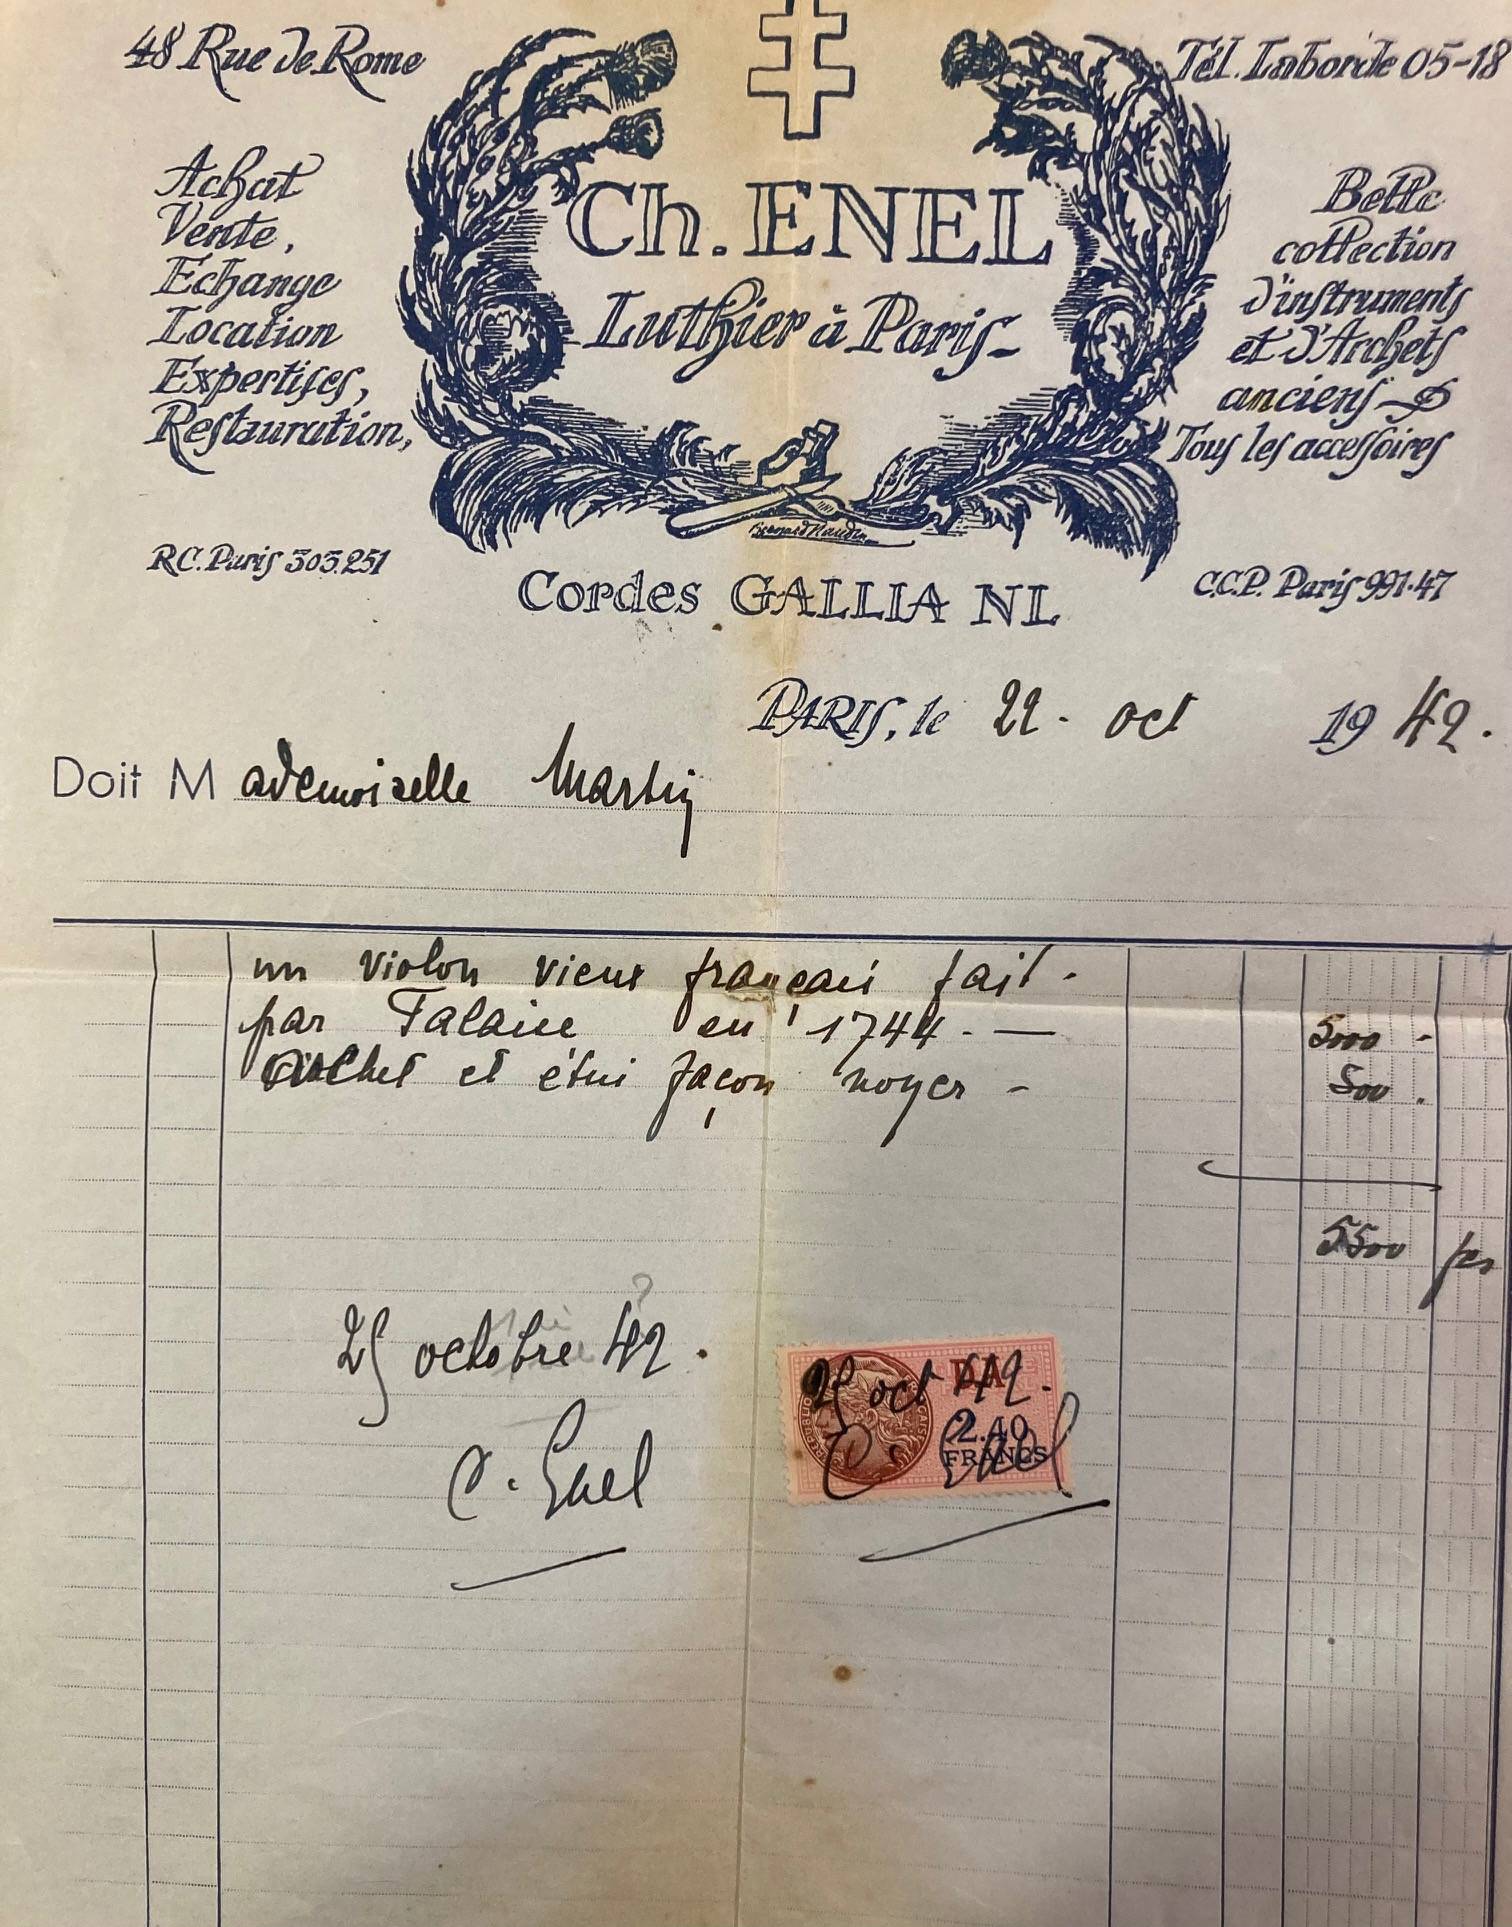 48 Rue de Rome
Tél. Laborde 05-18
Achat
Vente,
Echange
Location
Expertises,
Restauration,
Ch. ENEL
Luthier à Paris
Belle
collection
d'instruments
et d'Archets
anciens
Tous les accessoires
Bernard Naudin
R.C. Paris 303.251
Cordes GALLIA NL
C.C.P. Paris 991.47
PARIS, le 22 - oct 1942.
Doit Mademoiselle Martin
un violon vieux français fait -
par Falaise en 1744 - — 5000 -
Archet et étui façon noyer - 500 .
5500 frs
25 octobre 42 .
C. Enel
25 oct 42 .
C. Enel
2.40
FRANCS